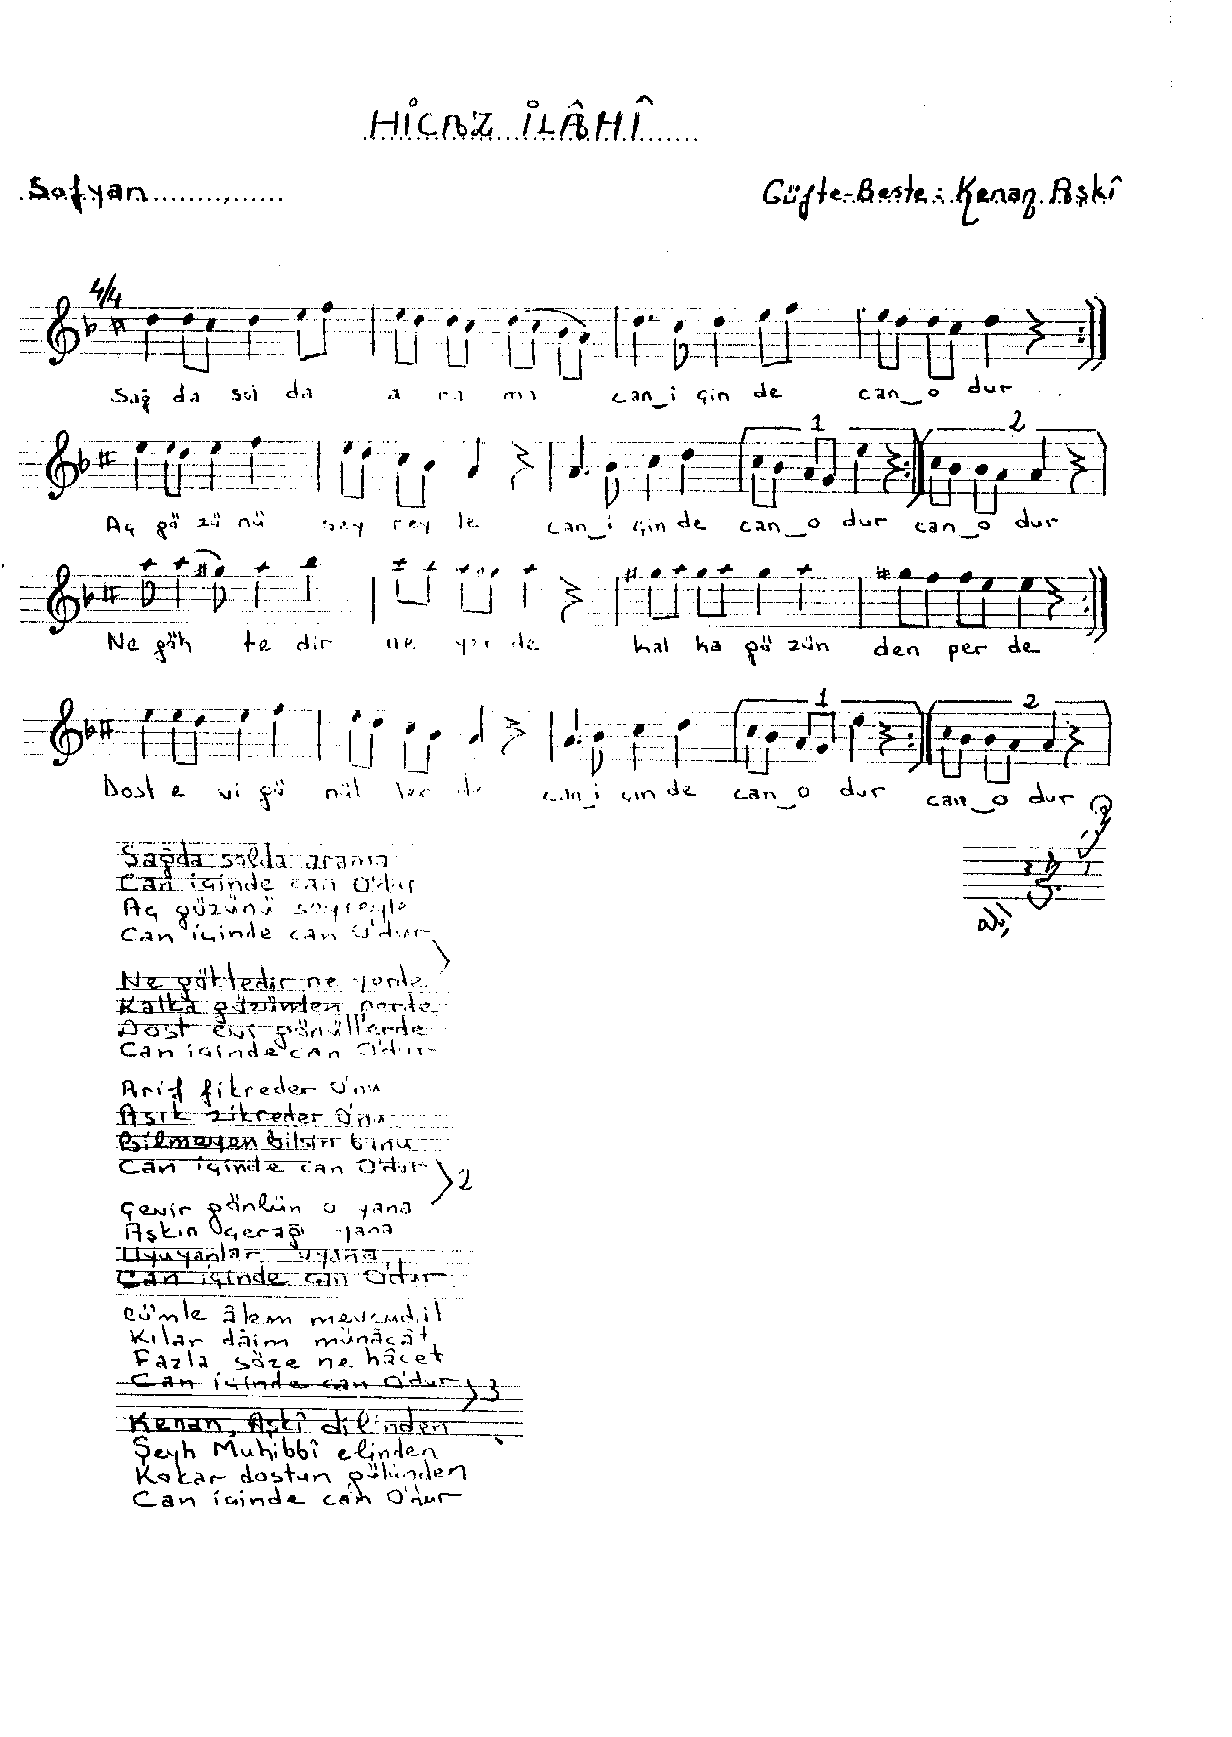 HİCAZ İLÂHİ
Sofyan
Güfte-Beste: Kenan Aşkî
4/4
Sağ da sol da a ra ma can_i çin de can_o dur
1 2
Aç gö zü nü sey rey le can_i çin de can_o dur can_o dur
Ne gök te dir ne yer de kal ka gö zün den per de
1 2
Dost e vi gö nül ler de can_i çin de can_o dur can_o dur
Sağda solda arama
Can içinde can O'dur
Aç gözünü seyreyle
Can içinde can O'dur
Ne göktedir ne yerde
Kalka gözünden perde
Dost evi gönüllerde
Can içinde can O'dur
Arif fikreder O'nu
Aşık zikreder O'nu
Bilmeyen bilsin bunu
Can içinde can O'dur
2
Çevir gönlün o yana
Aşkın çerağı yana
Uyuyanlar uyana
Can içinde can O'dur
Cümle âlem mevcudat
Kılar dâim münâcât
Fazla söze ne hâcet
Can içinde can O'dur
3
Kenan, Aşkî dilinden
Şeyh Muhibbî elinden
Kokar dostun gülünden
Can içinde can O'dur